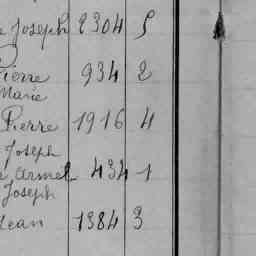 Joseph 2304 5
Pierre 934 2
Marie
Pierre 1916 4
Joseph
Armel 434 1
Joseph
Jean 1384 3